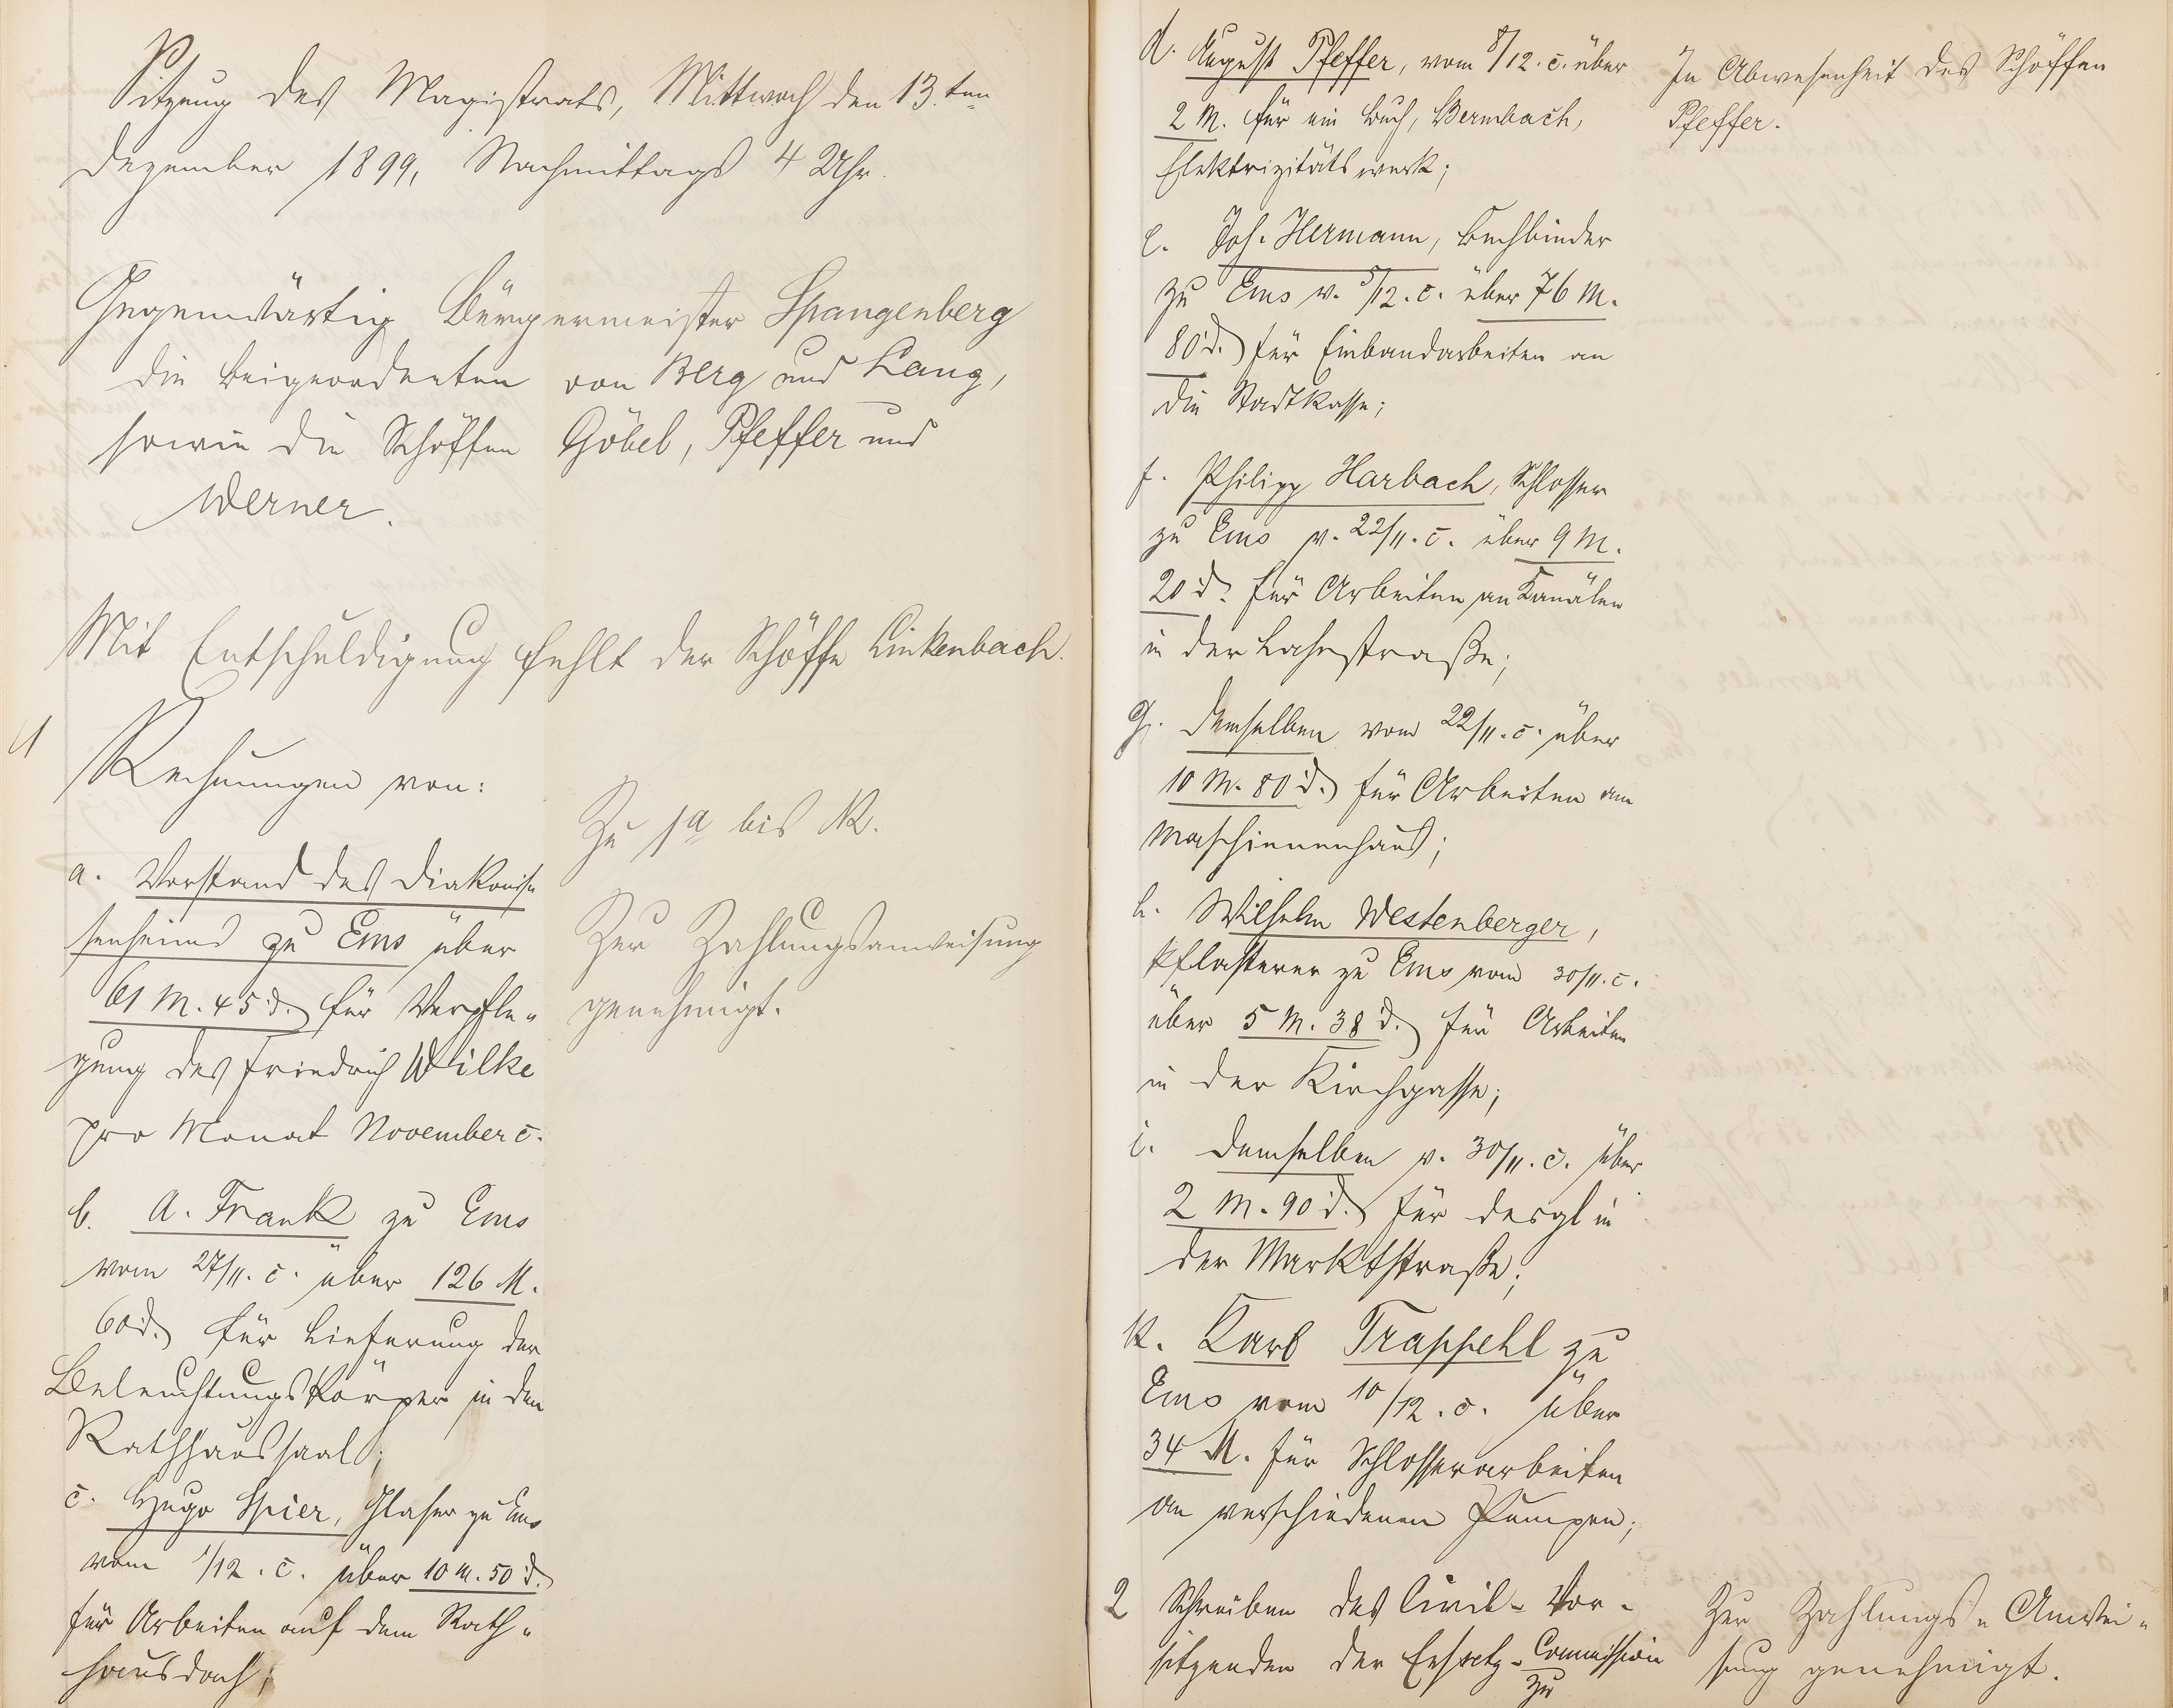 Sitzung des Magistrats, Mittwoch den 13.ten
Dezember 1899, Nachmittags 4 Uhr.
Gegenwärtig Bürgermeister Spangenberg
die Beigeordneten von Berg und Lang,
sowie die Schöffen Göbel, Pfeffer und
Werner.
Mit Entschuldigung fehlt der Schöffe Linkenbach.
1
Rechnungen von:
a. Vorstand des Diakonis-
senheims zu Ems über
61 M. 45 d. für Verpfle-
gung des Friedrich Wilke
pro Monat November c.
b. A. Frank zu Ems
vom 27/11. c. über 126 M.
60 d. für Lieferung der
Beleuchtungskörper in den
Rathhaussaal;
c. Hugo Spier, Glaser zu Ems
vom 1/12. c. über 10 M. 50 d.
für Arbeiten auf dem Rath-
hausdach;
Zu 1a bis k.
Zur Zahlungsanweisung
genehmigt.
d. August Pfeffer, vom 8/12. c. über
2 M. für ein Buch, Bermbach,
Elektrizitätswerk;
In Abwesenheit des Schöffen
Pfeffer.
e. Joh. Hermann, Buchbinder
zu Ems v. 5/12. c. über 76 M.
80 d. für Einbandarbeiten an
die Stadtkasse;
f. Philipp Harbach, Schlosser
zu Ems v. 22/11. c. über 9 M.
20 d. für Arbeiten an Kanälen
in der Lahnstraße;
g. Demselben vom 22/11. c. über
10 M. 80 d. für Arbeiten am
Maschinenhaus;
h. Wilhelm Westenberger,
Pflasterer zu Ems vom 30/11. c.
über 5 M. 38 d. für Arbeiten
in der Kirchgasse;
i. Demselben v. 30/11. c. über
2 M. 90 d. für desgl in
der Marktstraße;
k. Karl Trappehl zu
Ems vom 10/12. c. über
34 M. für Schlosserarbeiten
an verschiedenen Pumpen;
2 Schreiben des Civil-Vor-
sitzenden der Ersatz-Commission
zu
Zur Zahlungs-Anwei-
sung genehmigt.